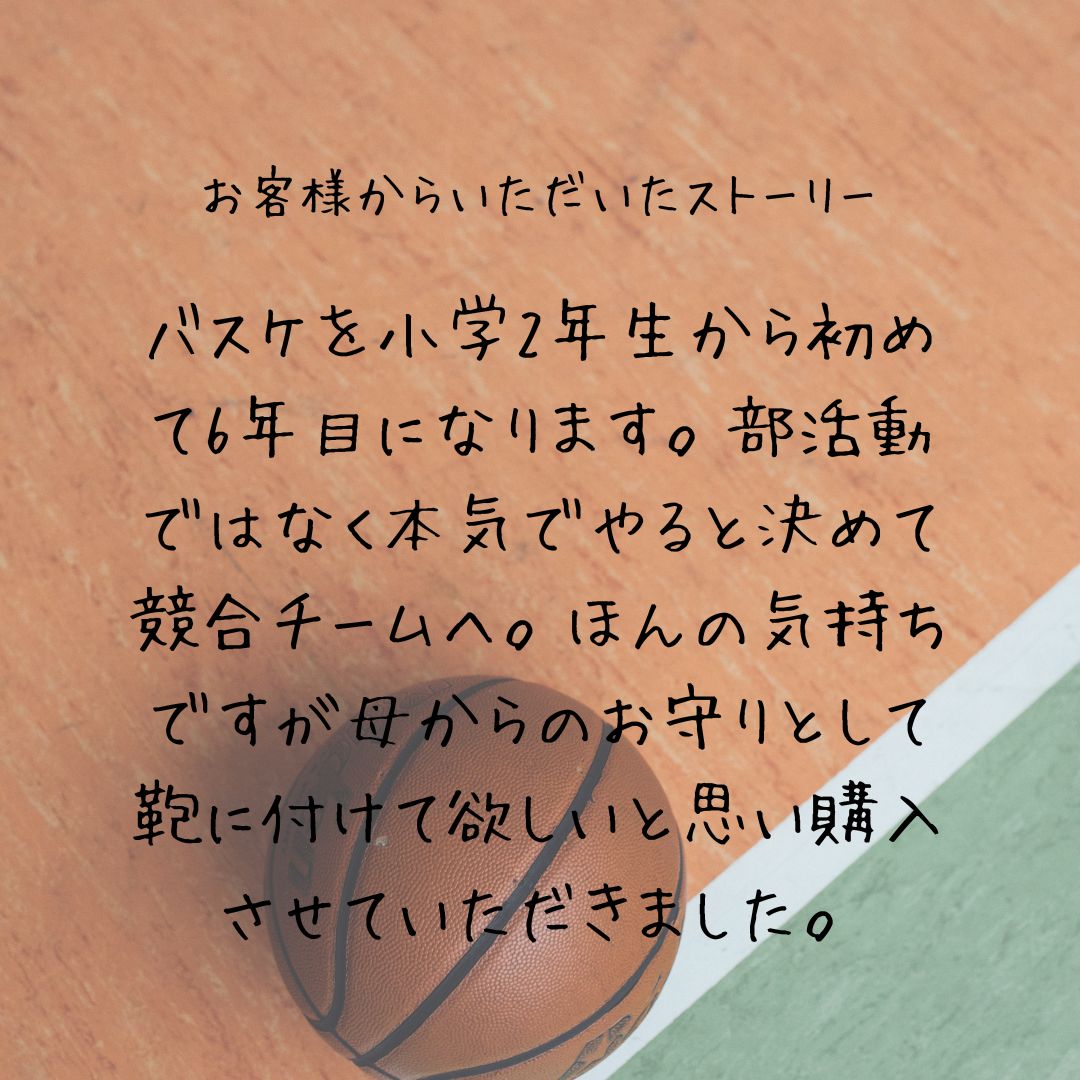 お客様からいただいたストーリー
バスケを小学2年生から初め
て6年目になります。部活動
ではなく本気でやると決めて
競合チームへ。ほんの気持ち
ですが母からのお守りとして
鞄に付けて欲しいと思い購入
させていただきました。